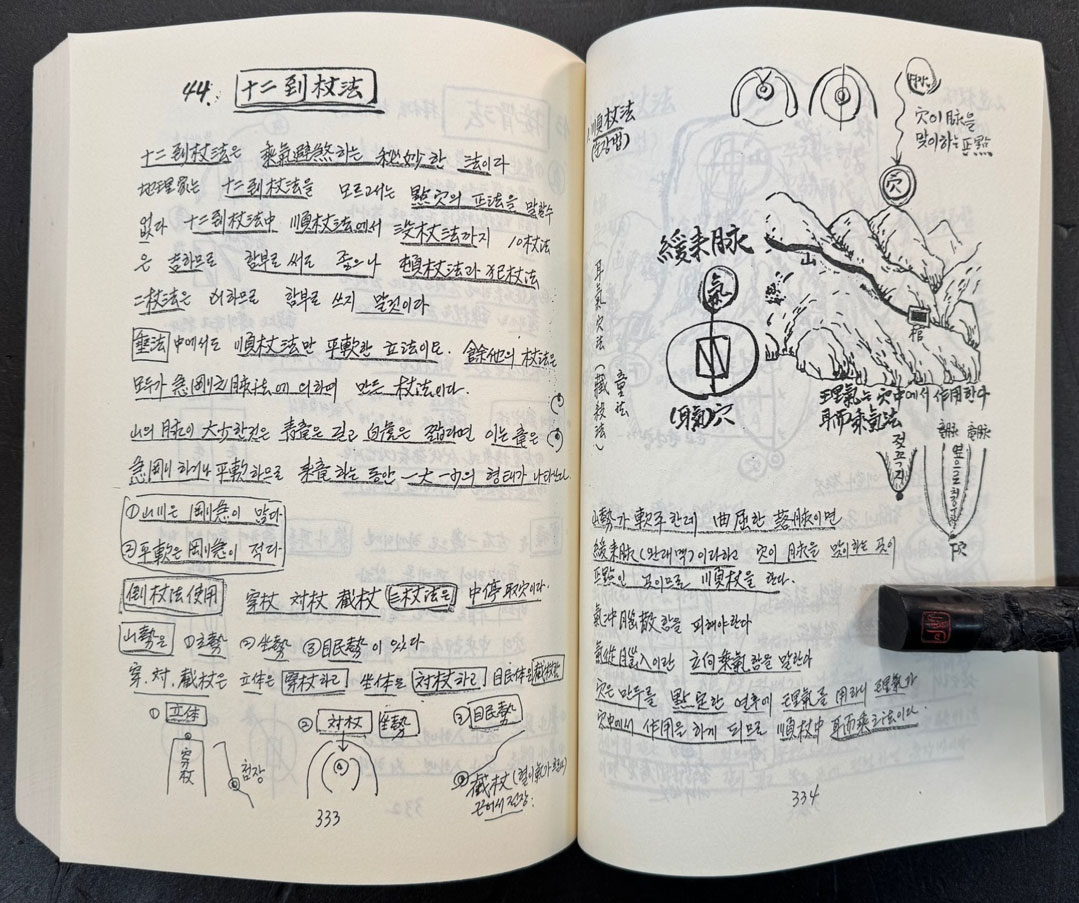 44. 十二到杖法
十二到杖法은 乘氣避煞하는 秘妙한 法이라
地理家는 十二到杖法을 모르고서는 點穴의 正法을 말할수
없다 十二到杖法中 順杖法에서 沒杖法까지 10杖法
은 吉하므로 함부로 써도 좋으나 頓杖法과 犯杖法
二杖法은 凶하므로 함부로 쓰지 말것이라
垂法中에서도 順杖法만 平軟한 立法이요. 餘他의 杖法은
모두가 急剛之脉法에 의하여 만든 杖法이다.
山의 脉이 大小한것은 靑龍은 길고 白虎은 짧다면 이는 龍은
急剛하거나 平軟하므로 來龍하는 동안 一大一小의 형태가 나타난다
①山川은 剛急이 많다
②平軟은 剛急이 적다
倒杖法使用 穿杖 対杖 截杖 三杖法은 中停取穴이라.
山勢은 ①立勢 ②坐勢 ③眠勢이 있다
穿. 対. 截杖은 立体은 穿杖하고 坐体은 対杖하고 眠体은 截杖함
① 立体
穿杖
점장
② 対杖 坐勢
③ 眠勢
截杖
끈어서 전장
333
順杖法
穴이 脉을
맞이하는 正點
穴
緩來脉
山
氣
棺
穴
耳氣穴法
(藏殺法)
理氣는 穴中에서 作用한다
耳而乘氣法
젖꼭지
山勢가 軟平한데 曲屈한 落脉이면
緩來脉(만래맥)이라하고 穴이 脉을 맞이하는 곳이
正點인 곳이므로 順杖을 한다.
氣冲腦散함을 피해야한다
氣從耳入이란 立向乘氣함을 말한다
穴은 만두를 點定한 연후에 理氣를 用하니 理氣가
穴中에서 作用을 하게 되므로 順杖中 耳而乘之法이라.
334